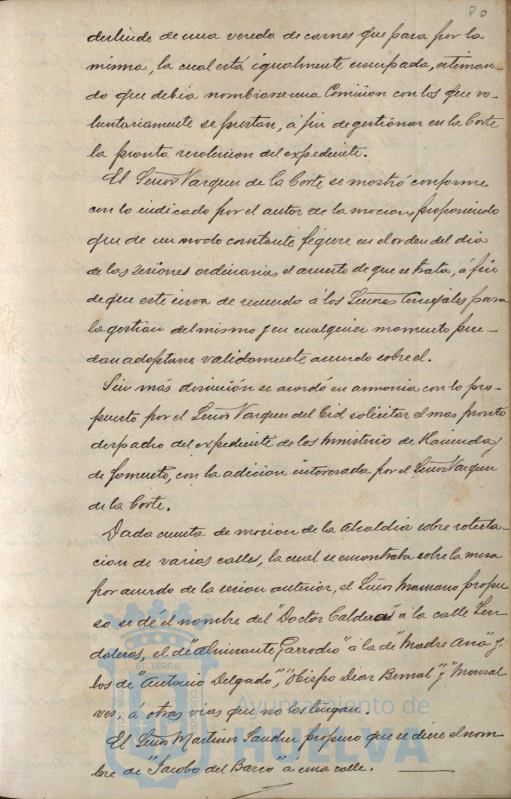 80
deslindo de una vereda de carnes que pasa por la
misma, la cual está igualmente ocupada, estiman-
do que debia nombrarse una Comisión con los que vo-
luntariamente se prestan, á fin de gestionar en la Corte
la pronta resolucion del expediente.
El Señor Vazquez de la Corte se mostró conforme
con lo indicado por el autor de la mocion, proponiendo
que de un modo constante figure en el orden del dia
de las sesiones ordinarias el asunto de que se trata, á fin
de que este sirva de recuerdo á los Señores Concejales para
la gestion del mismo y en cualquier momento pue-
dan adoptarse validamente acuerdo sobre el.
Sin más discusión se acordó en armonia con lo pro-
puesto por el Señor Vazquez del Cid solicitar el mas pronto
despacho del expediente de los Ministerio de Hacienda y
de Fomento, con la adicion interesada por el Señor Vazquez
de la Corte.
Dada cuenta de mocion de la Alcaldia sobre rotula-
cion de varias calles, la cual se encontraba sobre la mesa
por acuerdo de la sesion anterior, el Señor propu-
so se dé el nombre del "Doctor Calderas" á la calle
el de "Almirante Garrocho" á la de "Madre Ana" y
los de "Antonio Delgado", "Obispo Diaz Bernal" y "Monsal-
ves" á otras vias que no los tengan.
El Señor Martinez Sanchez propuso que se diese el nom-
bre de "Jacobo del Barco" á una calle.
EL TERRAE
Ayuntamiento de
HUELVA